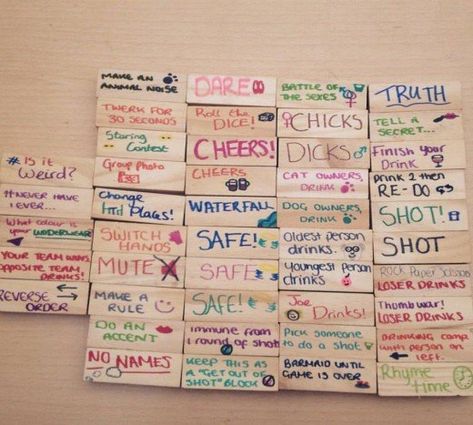 #Is it
Weird?
I Never Have
I ever...
What colour is
your UNDERWEAR
YOUR TEAM WINS,
OPPOSITE TEAM,
DRINKS!
REVERSE
ORDER
MAKE AN
ANIMAL NOISE
TWERK FOR
30 SECONDS
Staring
Contest
Group Photo
Change
Places!
SWITCH
HANDS
MUTE
MAKE A
RULE
DO AN
ACCENT
NO NAMES
DARE
Roll the
DICE!
CHEERS!
CHEERS
WATERFALL
SAFE!
SAFE
SAFE!
Immune from
1 round of shots
KEEP THIS AS
A "GET OUT OF
SHOT" BLOCK
BATTLE OF
THE SEXES
CHICKS
DICKS
CAT OWNERS,
DRINK
DOG OWNERS,
DRINK
Oldest person
drinks.
Youngest person
drinks
Joe
Drinks!
Pick someone
to do a shot.
BARMAID UNTIL
GAME IS OVER
TRUTH
TELL A
SECRET...
Finish your
Drink
Drink 2 then
RE-DO
SHOT!
SHOT
ROCK Paper Scissors
LOSER DRINKS
Thumb war!
LOSER DRINKS
DRINKING comp
with person on
left.
Rhyme
time